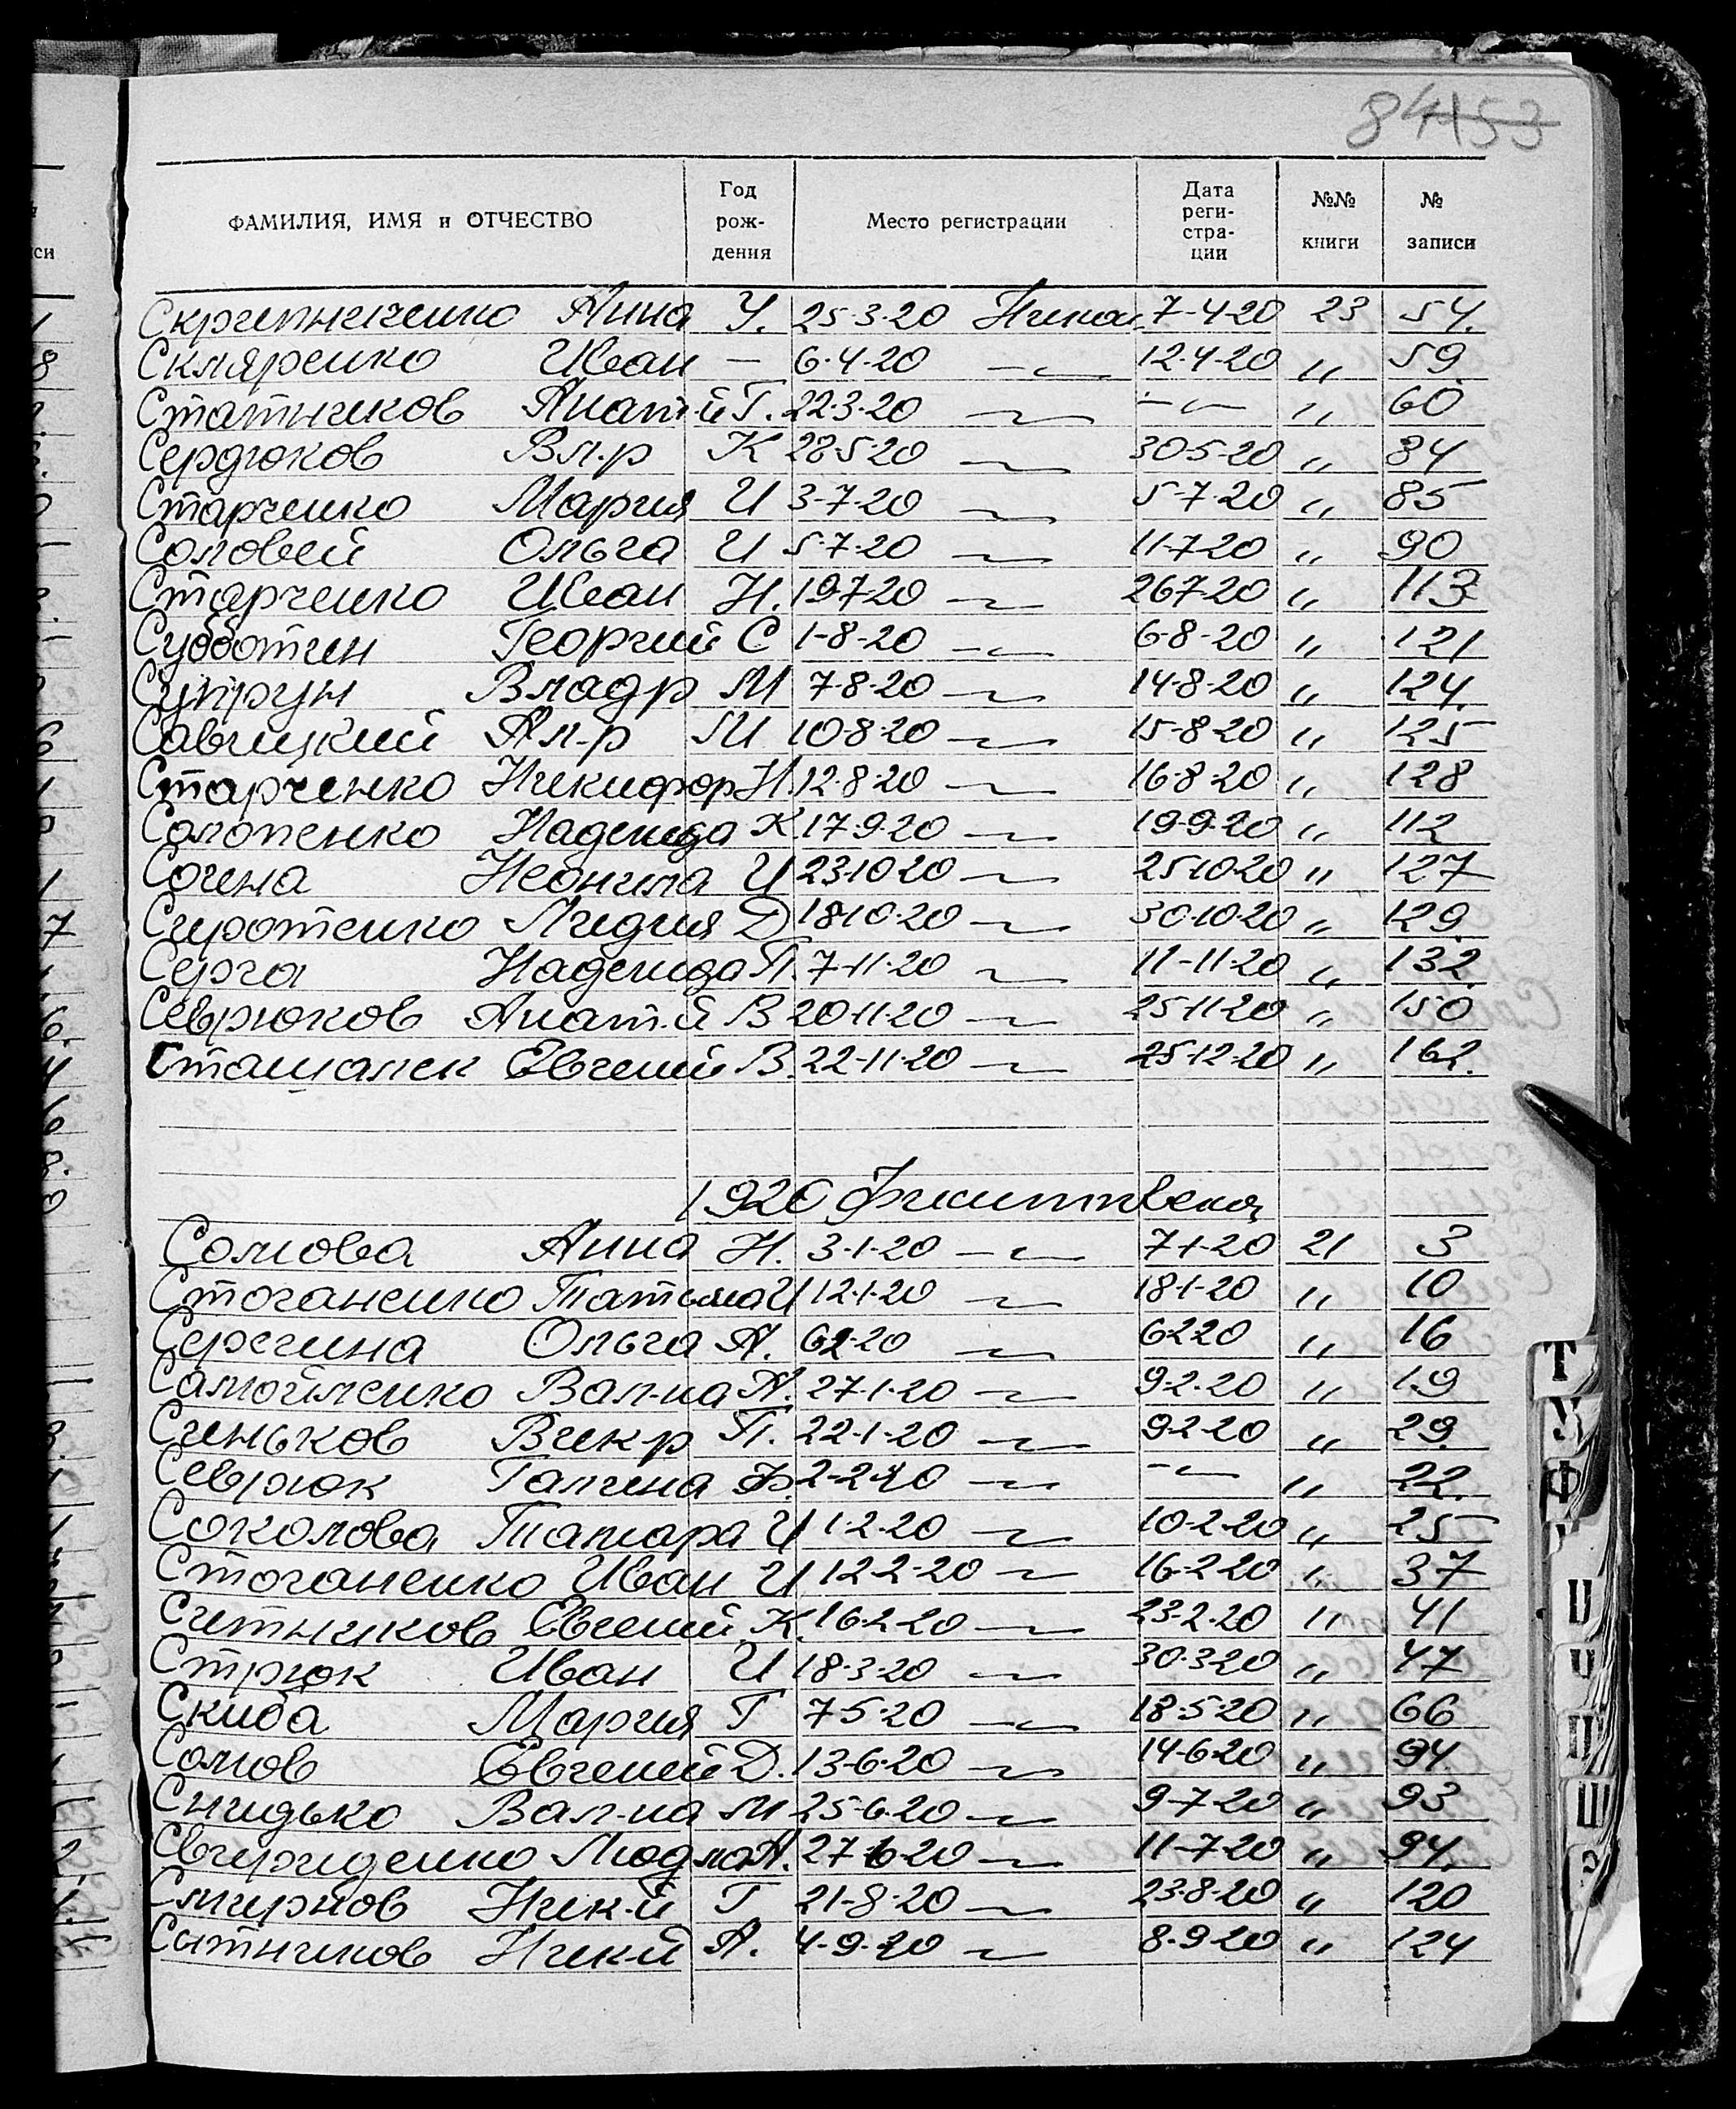 84153
ФАМИЛИЯ, ИМЯ и ОТЧЕСТВО Год рождения Место регистрации Дата регистрации №№ книги № записи
Скрипниченко Анна У. 25-3-20 7-4-20 23 54.
Скляренко Иван — 6-4-20 —〃— 12-4-20 〃 59
Статников Анат-й Г. 22-3-20 —〃— —〃— 〃 60
Сердюков Вл-р К 28-5-20 —〃— 30-5-20 〃 84
Старченко Мария И 3-7-20 —〃— 5-7-20 〃 85
Соловей Ольга И 5-7-20 —〃— 11-7-20 〃 90
Старченко Иван Н. 19-7-20 —〃— 26-7-20 〃 113
Субботин Георгий С 1-8-20 —〃— 6-8-20 〃 121
Супрун Владр М 7-8-20 —〃— 14-8-20 〃 124.
Савицкий Ал-р М 10-8-20 —〃— 15-8-20 〃 125
Старченко Никифор Н. 12-8-20 —〃— 16-8-20 〃 128
Солопенко Надежда К. 17-9-20 —〃— 19-9-20 〃 112
Сочена Неонила И 23-10-20 —〃— 25-10-20 〃 127
Сиротенко Лидия Д 18-10-20 —〃— 30-10-20 〃 129.
Серга Надежда П. 7-11-20 —〃— 11-11-20 〃 132.
Севрюков Анат-й В 20-11-20 —〃— 25-11-20 〃 150
Сташалек Евгений В. 22-11-20 —〃— 25-12-20 〃 162.
1920
Сомова Анна Н. 3-1-20 —〃— 7-1-20 21 3
Стоганенко Татьяна И 12-1-20 —〃— 18-1-20 〃 10
Серегина Ольга А. 6-2-20 —〃— 6-2-20 〃 16
Самойленко Вал-на А. 27-1-20 —〃— 9-2-20 〃 19
Синьков Викр П. 22-1-20 —〃— 9-2-20 〃 29.
Севрюк Галина Ф. 2-2-20 —〃— —〃— 〃 22.
Соколова Тамара И 1-2-20 —〃— 10-2-20 〃 25
Стоганенко Иван И 12-2-20 —〃— 16-2-20 〃 37
Ситников Евгений К. 16-2-20 —〃— 23-2-20 〃 41
Стрюк Иван И 18-3-20 —〃— 30-3-20 〃 47
Скиба Мария Г 7-5-20 —〃— 18-5-20 〃 66
Сомов Евгений Д. 13-6-20 —〃— 14-6-20 〃 94.
Снидько Вал-на М 25-6-20 —〃— 9-7-20 〃 93
Свириденко Людм-а А. 27-6-20 —〃— 11-7-20 〃 94.
Смирнов Ник-й Г 21-8-20 —〃— 23-8-20 〃 120
Сытников Ник-й А. 4-9-20 —〃— 8-9-20 〃 124
Т
У
Ф
Ш